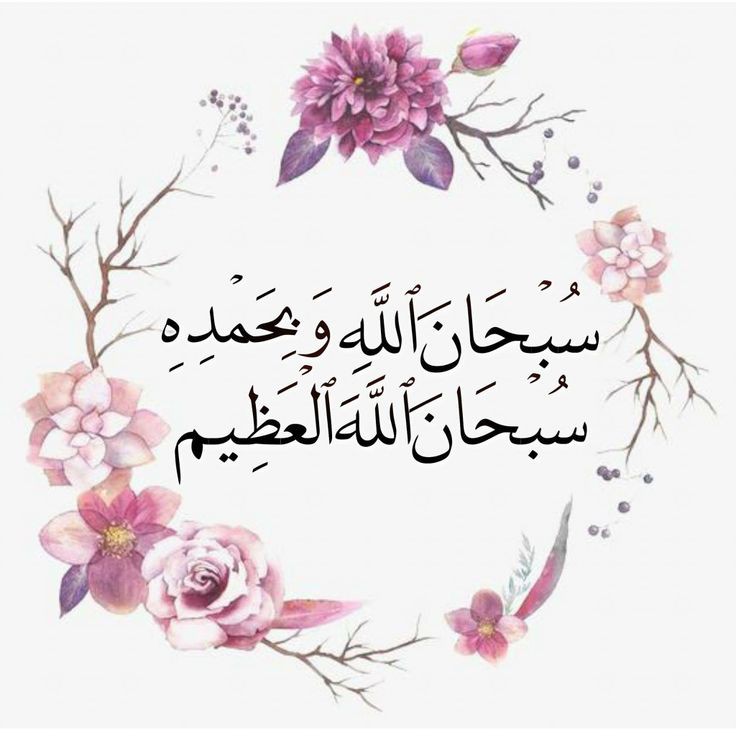 سُبْحَانَ ٱللَّهِ وَ بِحَمْدِهِ
سُبْحَانَ ٱللَّهَ ٱلْعَظِيم